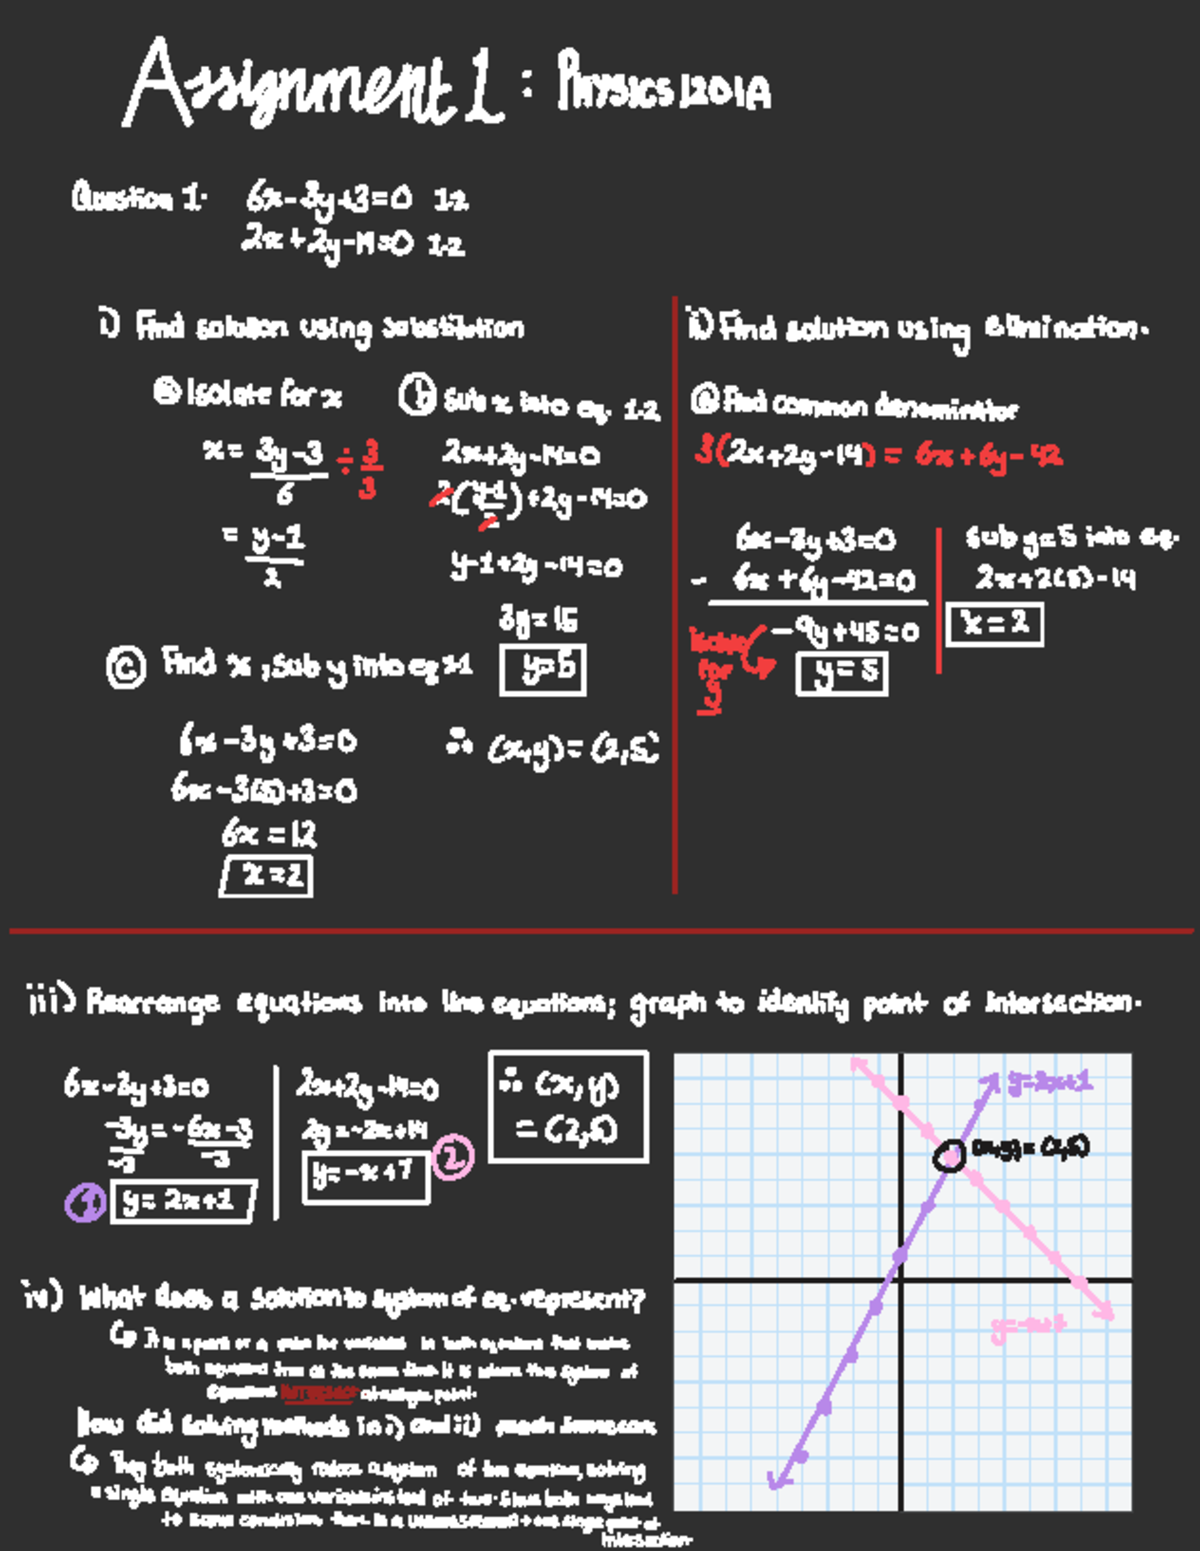 Assignment 1 : Physics 1201A
Question 1. 6x-3y+3=0 1.2
2x+2y-14=0 1.2
i) Find solution using substitution
a Isolate for x
x = 3y-3 ÷ 3
6 3
= y-1
2
b Sub x into eq. 1.2
2x+2y-14=0
2(y-1)+2y-14=0
2
y-1+2y-14=0
3y=15
y=5
c Find x, sub y into eq 1.1
6x-3y+3=0
6x-3(5)+3=0
6x=12
x=2
∴ (x,y)=(2,5)
ii) Find solution using elimination.
a Find common denominator
3(2x+2y-14) = 6x+6y-42
6x-3y+3=0
- 6x+6y-42=0
-9y+45=0
Isolate for y
y=5
Sub y=5 into eq.
2x+2(5)-14
x=2
iii) Rearrange equations into line equations; graph to identify point of intersection.
6x-3y+3=0
-3y=-6x-3
-3 -3
1 y=2x+1
2x+2y-14=0
2y=-2x+14
y=-x+7 2
∴ (x,y)
= (2,5)
y=2x+1
(x,y)=(2,5)
y=-x+7
iv) What does a solution to system of eq. represent?
both equations true at the same time it is where the system of
equations intersect at single point.
How did solving methods in i) and ii)
They both systematically reduce a system of two equations, solving
a single equation with one variable instead of two
intersection.